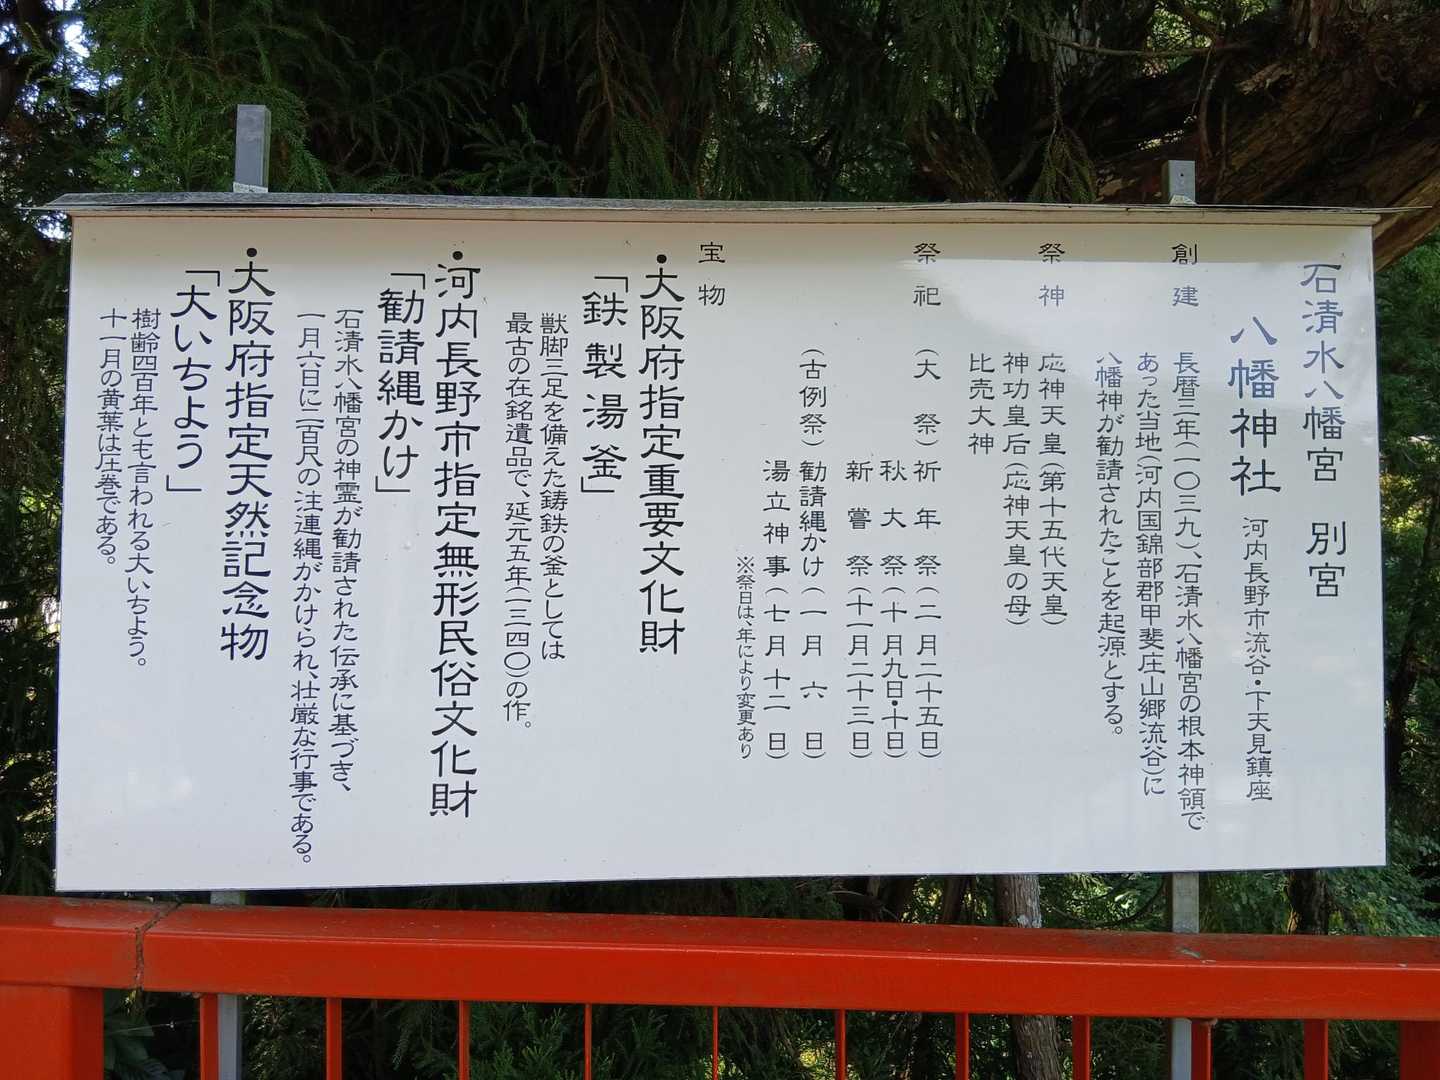 石清水八幡宮 別宮
八幡神社 河内長野市流谷・下天見鎮座
創建
長暦三年(一〇三九)、石清水八幡宮の根本神領で
あった当地(河内国錦部郡甲斐庄山郷流谷)に
八幡神が勧請されたことを起源とする。
祭神
応神天皇(第十五代天皇)
神功皇后(応神天皇の母)
比売大神
祭祀
(大祭)祈年祭(二月二十五日)
秋大祭(十月九日・十日)
新嘗祭(十一月二十三日)
(古例祭)勧請縄かけ(一月六日)
湯立神事(七月十二日)
※祭日は、年により変更あり
宝物
・大阪府指定重要文化財
「鉄製湯釜」
獣脚三足を備えた鋳鉄の釜としては
最古の在銘遺品で、延元五年(一三四〇)の作。
・河内長野市指定無形民俗文化財
「勧請縄かけ」
石清水八幡宮の神霊が勧請された伝承に基づき、
一月六日に二百尺の注連縄がかけられ、壮厳な行事である。
・大阪府指定天然記念物
「大いちよう」
樹齢四百年とも言われる大いちよう。
十一月の黄葉は圧巻である。